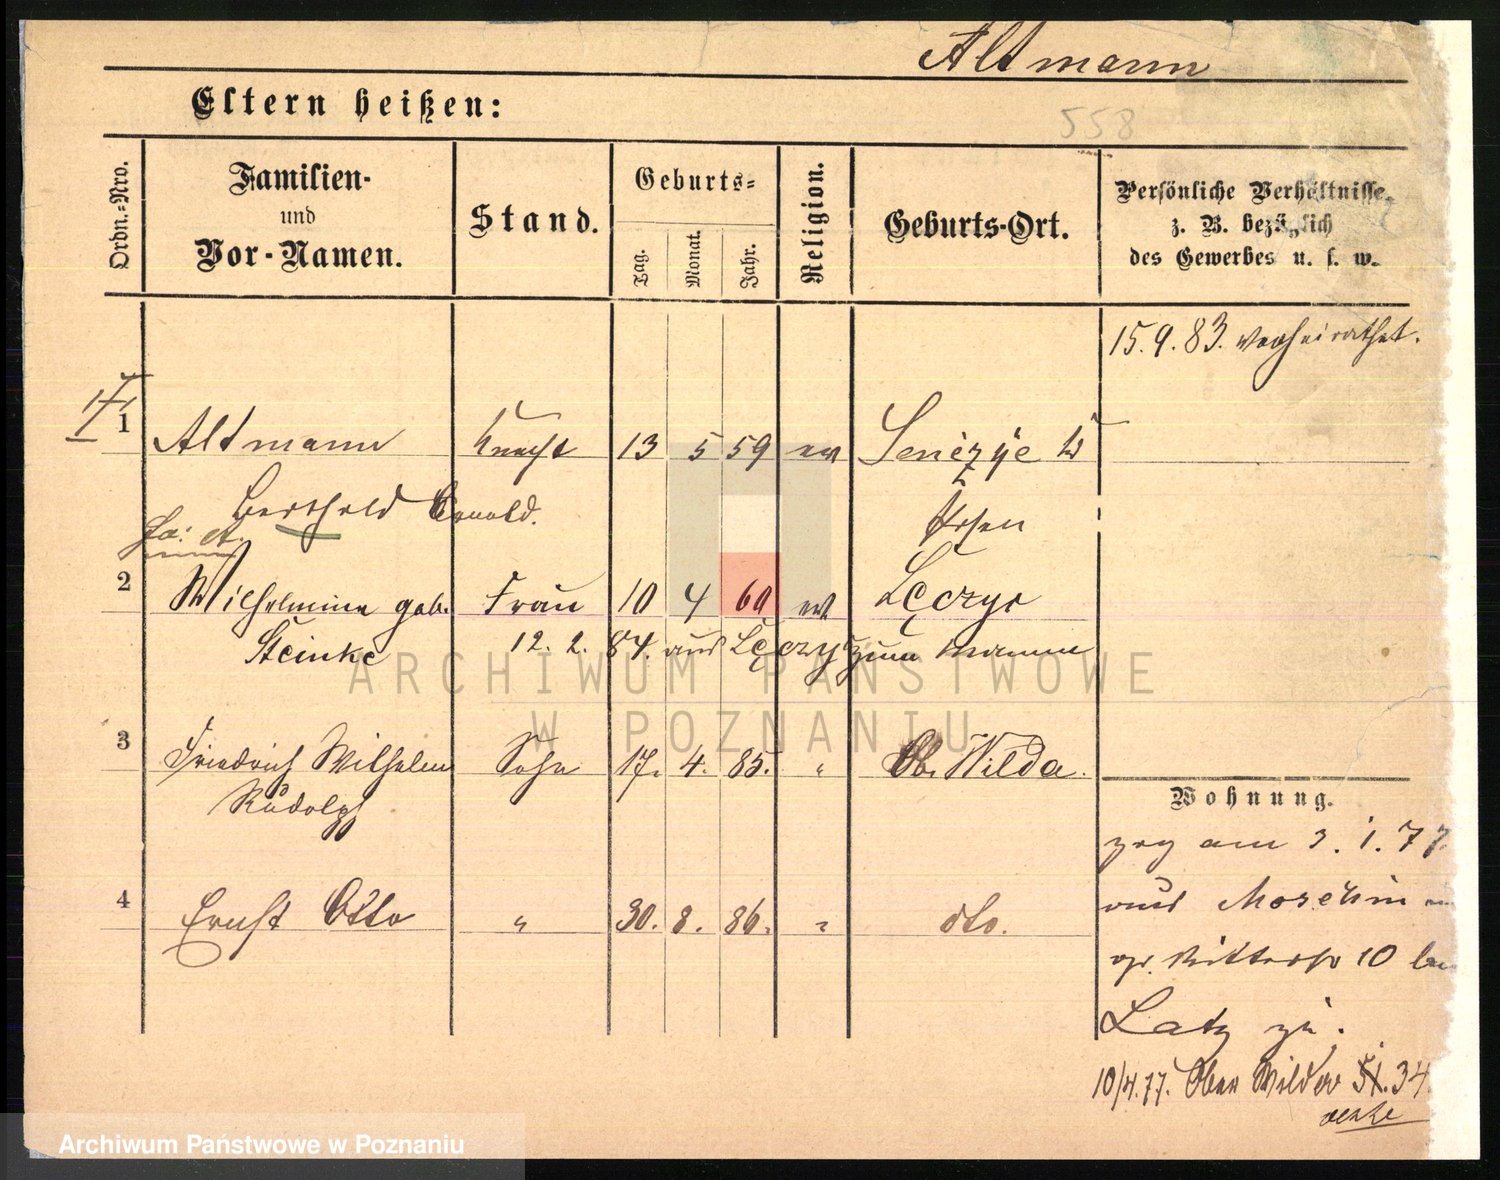 Altmann
Eltern heißen:
558
Ordn.-Nro.
Familien-
und
Vor-Namen.
Stand.
Geburts-
Tag.
Monat.
Jahr.
Religion.
Geburts-Ort.
Persönliche Verhältnisse,
z. B. bezüglich
des Gewerbes u. s. w.
15.9.83. verheirathet.
1 Altmann Knecht 13 5 59 ev
Berthold Arnold.
Posen
2 Wilhelmine geb. Frau 10 4 60 ev
Steinke 12. 2. 84. aus zum Manne
3 Friedrich Wilhelm Sohn 17. 4. 85. " Ob. Wilda.
Rudolph
Wohnung.
zog am 3. 1. 77
aus Moschin
4 Ernst Otto " 30. 8. 86. " dto.
10 bei
Latz zu.
10/4.77. Ober Wilda 34.
ARCHIWUM PAŃSTWOWE
W POZNANIU
Archiwum Państwowe w Poznaniu